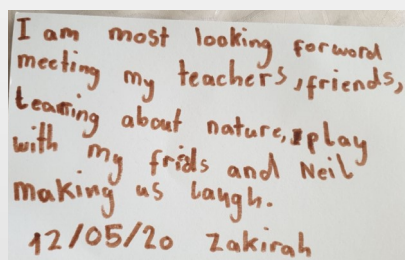 I am most looking forword
meeting my teachers, friends,
learning about nature, play
with my frids and Neil
making us laugh.
12/05/20 Zakirah